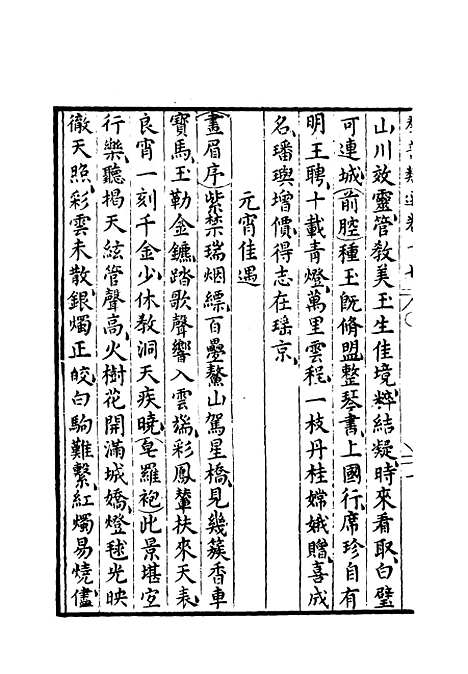 山川放靈管教美玉生佳境粹結凝時來看取白璧
可連城前腔種玉旣脩盟整琴書上國行席珍自有
明王聘十載青燈萬里雲程一枝丹桂嫦娥贈喜成
名璠璵增價得志在瑶京
元宵佳遇
畫眉序紫禁瑞烟縹百疊鰲山駕星橋見幾簇香車
寶馬玉勒金鑣踏歌聲響入雲端彩鳳輦扶來天表
良宵一刻千金少休教洞天疾曉皂羅袍此景堪宜
行樂聽揭天絃管聲高火樹花開滿城嬌燈毬光映
徹天照彩雲未散銀燭正皎白駒難繫紅燭易燒儘